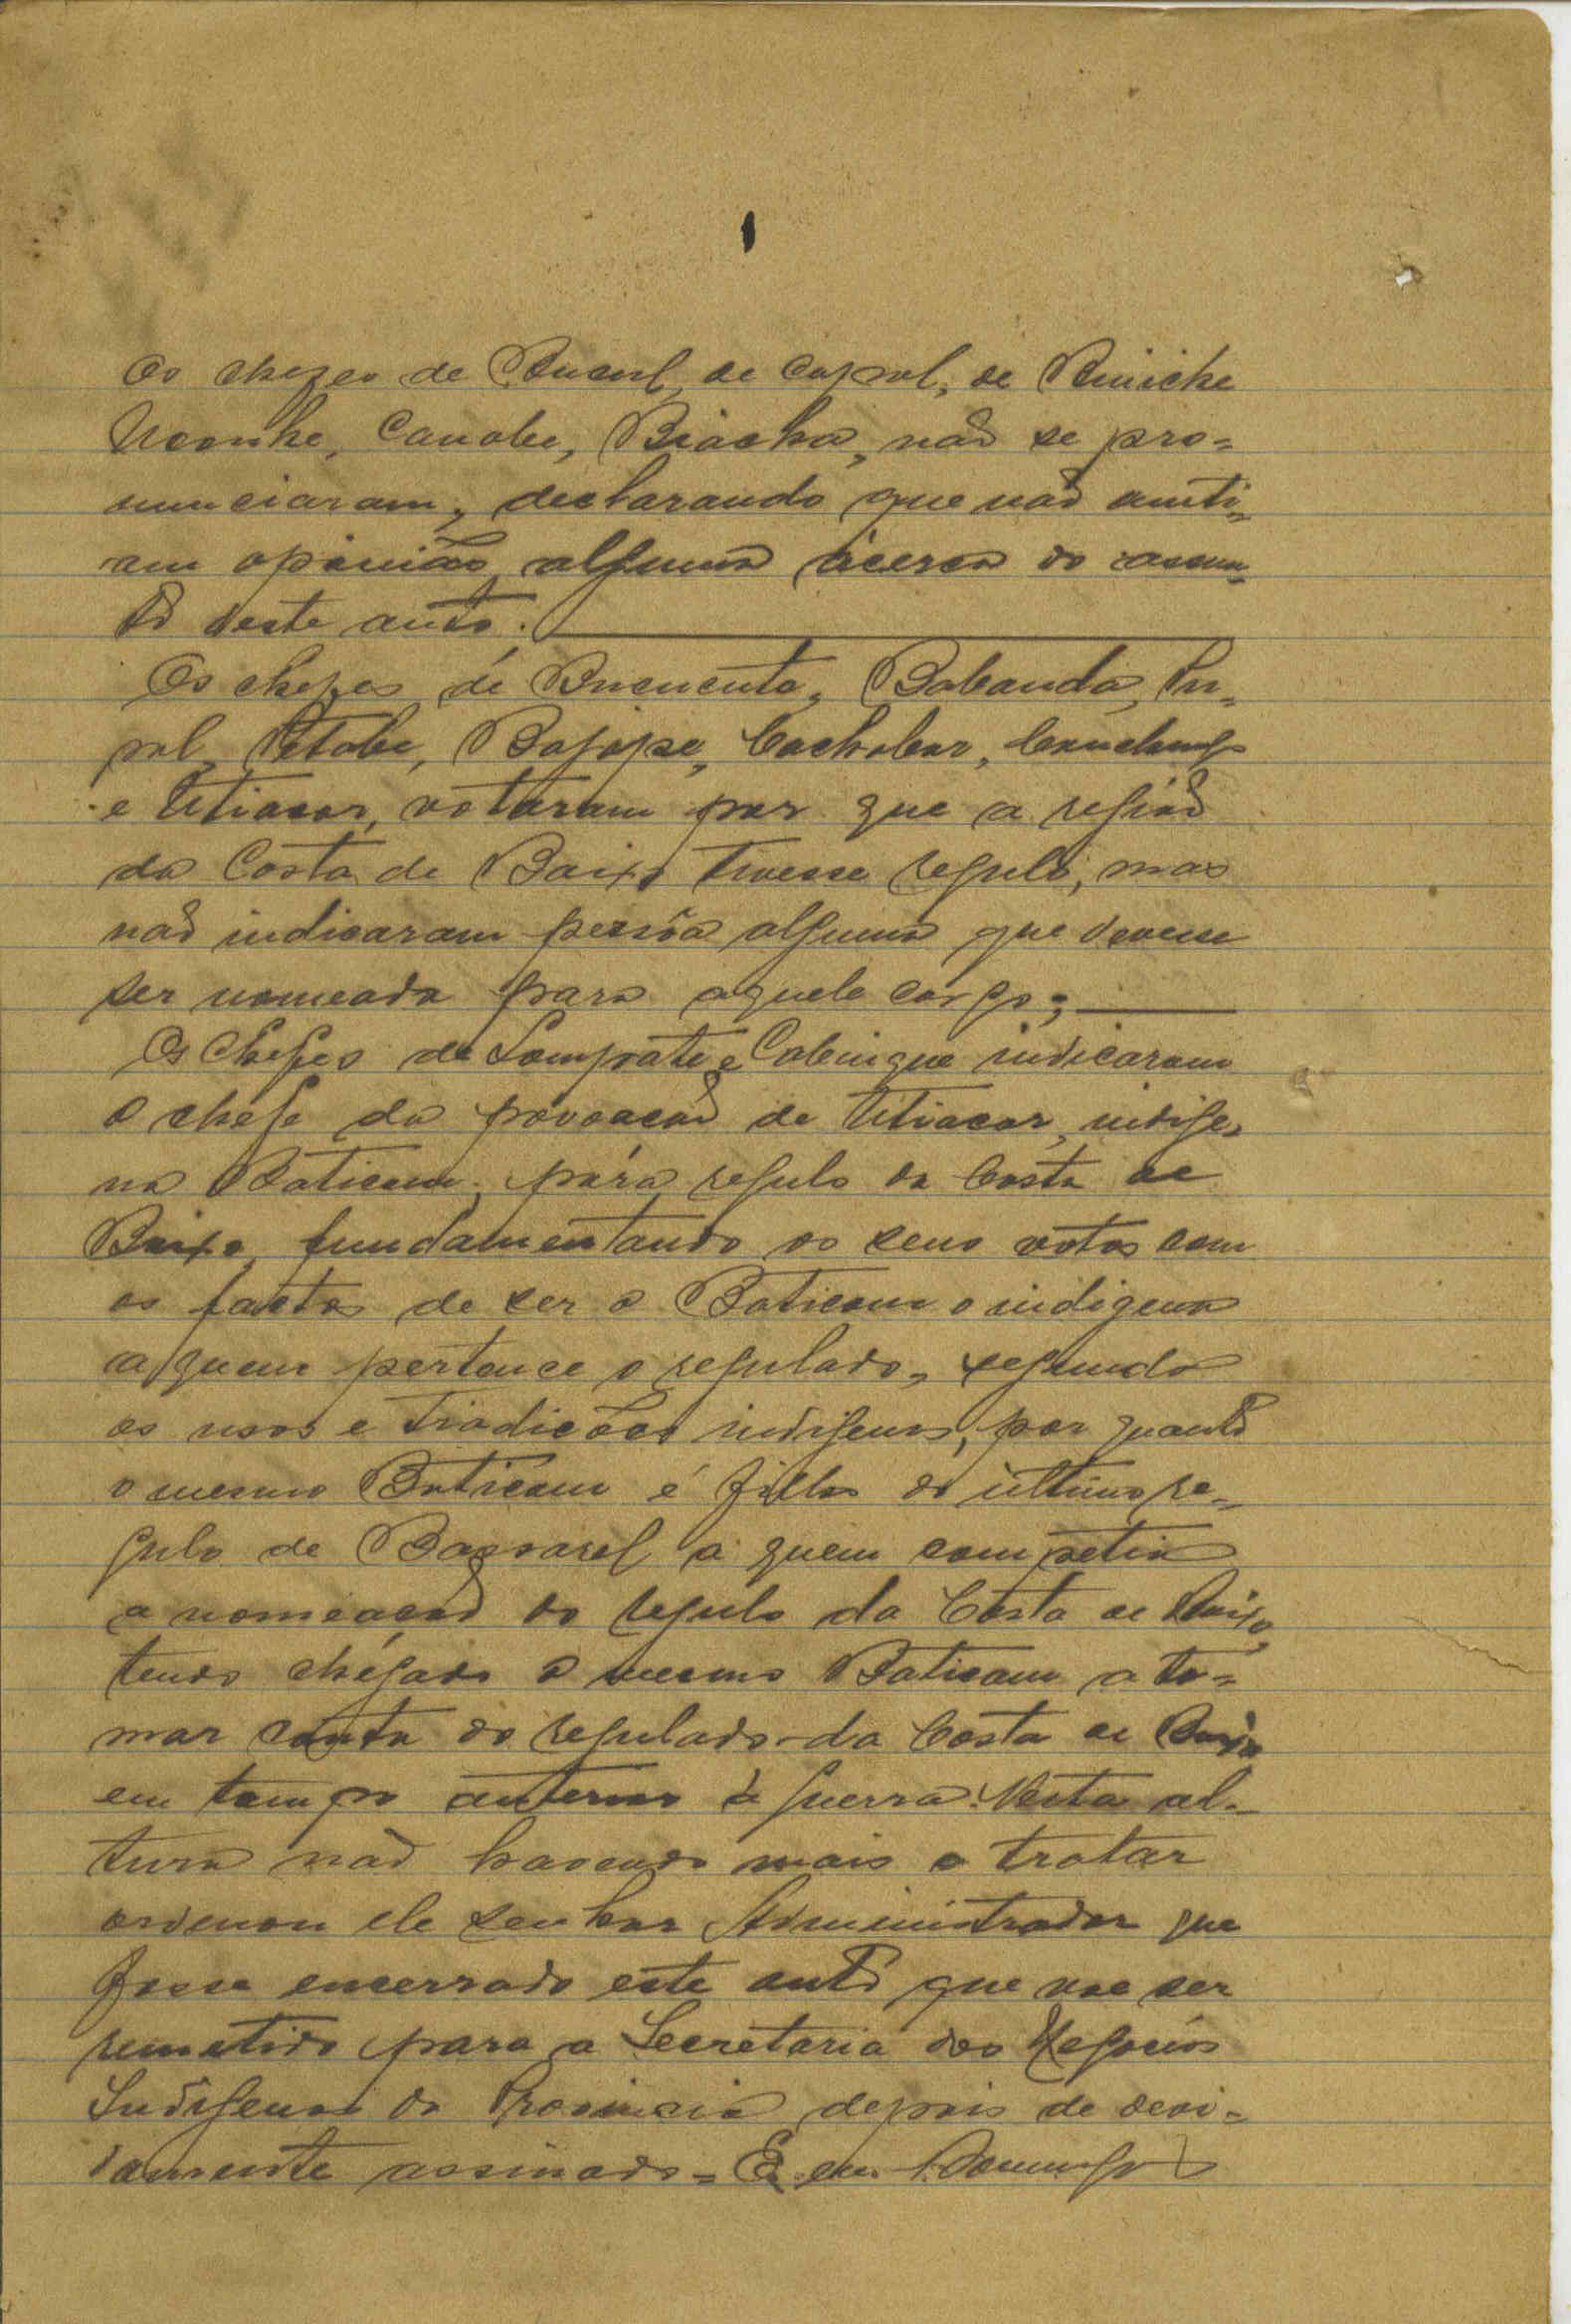 Os chefes de Bucul, de Capol, de Biniche
Uconhe, Canobe, Biacha, não se pro=
nunciaram, declarando que não emiti-
am opinião alguma ácerca do assun-
to deste auto.
Os chefes de Bucucute, Babanda, Pu-
pol, Petabe, Bajope, Cachobar,
e Utiacor, votaram por que a região
da Costa de Baixo tivesse regulo, mas
não indicaram pessôa alguma que devesse
ser nomeada para aquele cargo;
Os Chefes de Somprate e Cabingue indicaram
o chefe da povoação de Utiacor, indige-
na Baticam, pára regulo da Costa de
Baixo, fundamentando os seus votos com
os factos de ser o Baticam o indigena
a quem pertence o regulado, segundo
os usos e tradições indigenas, por quanto
o mesmo Baticam é filho do ultimo re-
gulo de Bassarel a quem competia
a nomeação do regulo da Costa de Baixo,
tendo chegado o mesmo Baticam a to=
mar conta do regulado da Costa de Baixo
em tempo anterior à guerra. Nesta al-
tura não havendo mais a tratar
ordenou ele senhor Administrador que
fosse encerrado este auto que vae ser
remetido para a Secretaria dos Negocios
Indigenas da Provincia depois de devi=
damente assinado = E eu Domingos